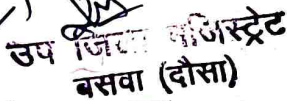 उप जिला मजिस्ट्रेट
बसवा (दौसा)